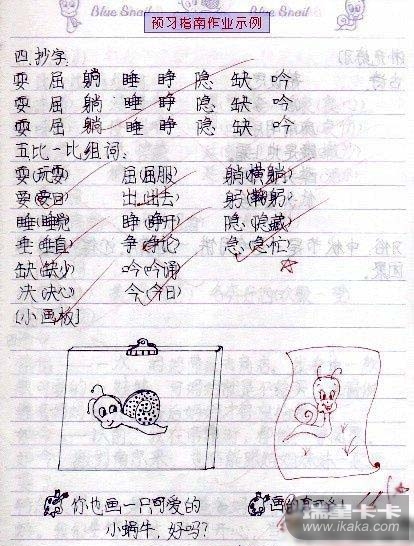 Blue Snail Blue Snail
预习指南作业示例
四.抄字.
耍 屈 躺 睡 睁 隐 缺 吟
耍 屈 躺 睡 睁 隐 缺 吟
耍 屈 躺 睡 睁 隐 缺 吟
五比一比组词.
耍(玩耍) 屈(屈服) 躺(横躺)
出(出去) 躬(鞠躬)
睡(睡觉) 睁(睁开) 隐(隐藏)
垂(垂直) 争(争论) 急(急忙)
缺(缺少) 吟(吟诵)
决(决心) 今(今日)
[小画板]
你也画一只可爱的 画的真可
小蜗牛,好吗?
瑞星卡卡
www.ikaka.com